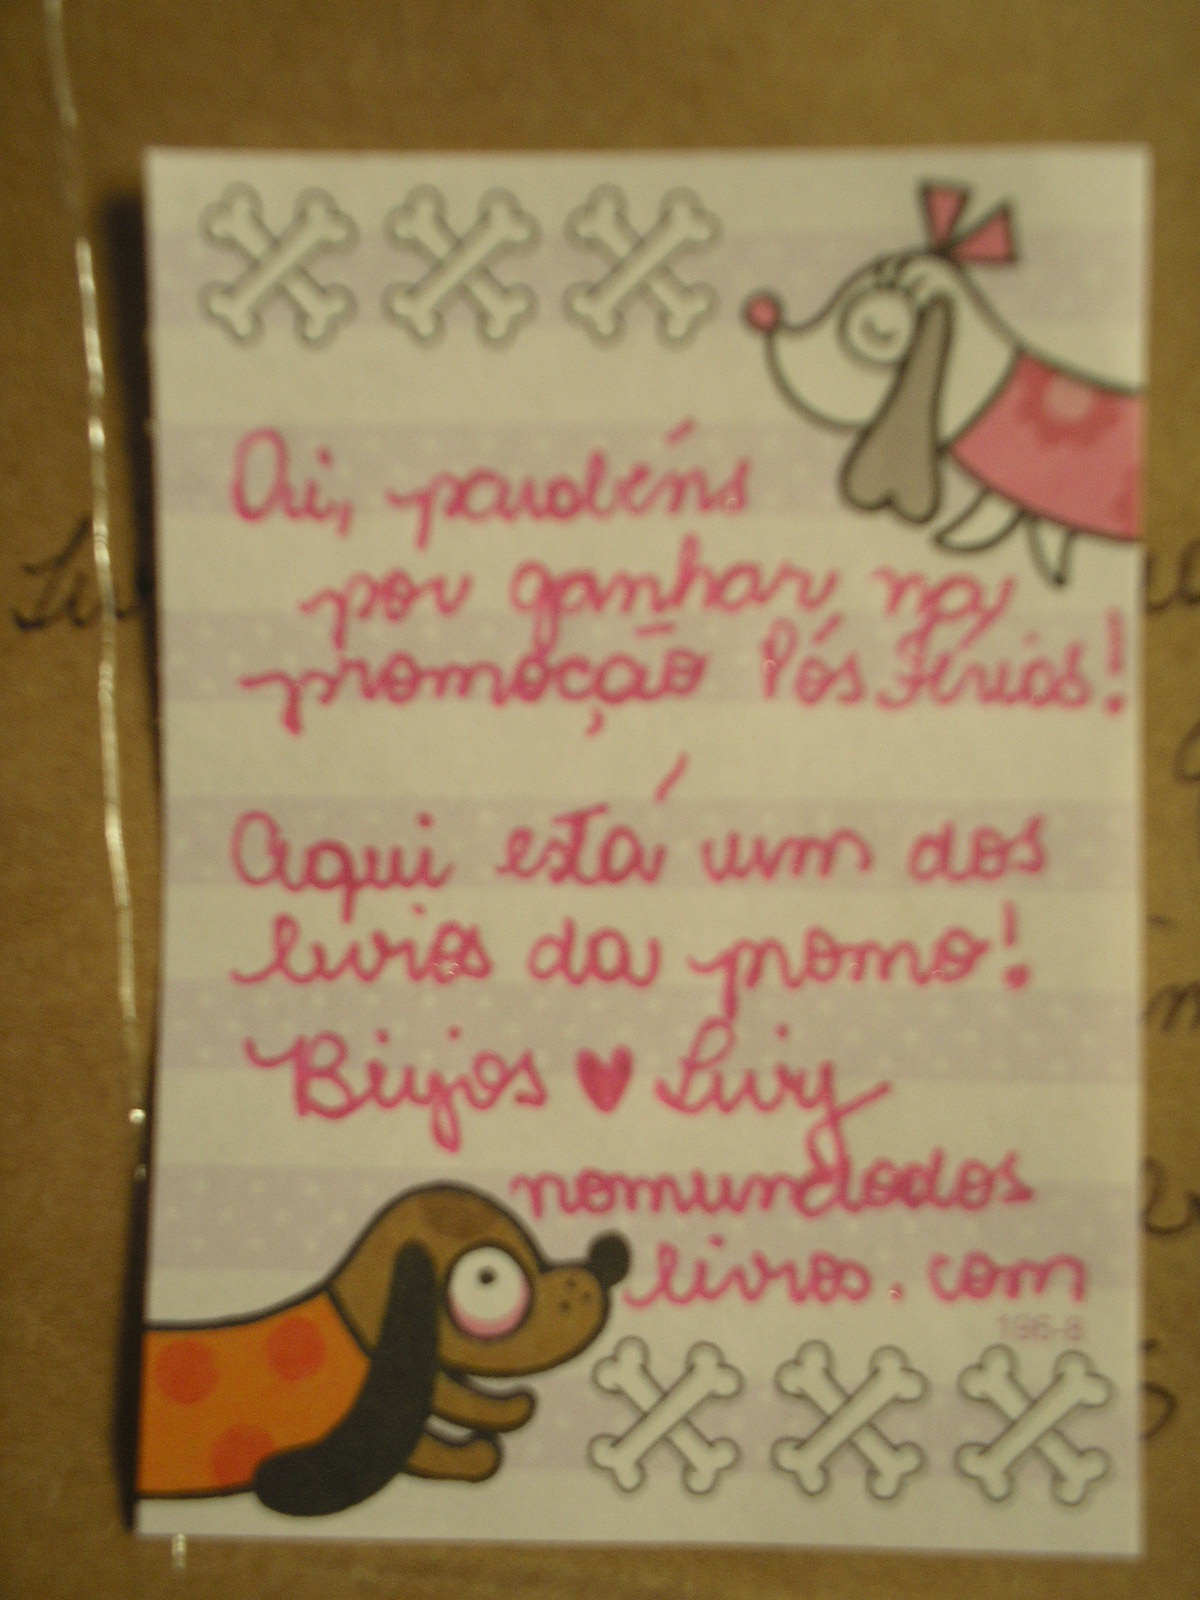 Oi, parabéns
por ganhar na
promoção Pós Férias!
Aqui está um dos
livros da promo!
Beijos ♥ Livy
nomundodos
livros.com
196-8